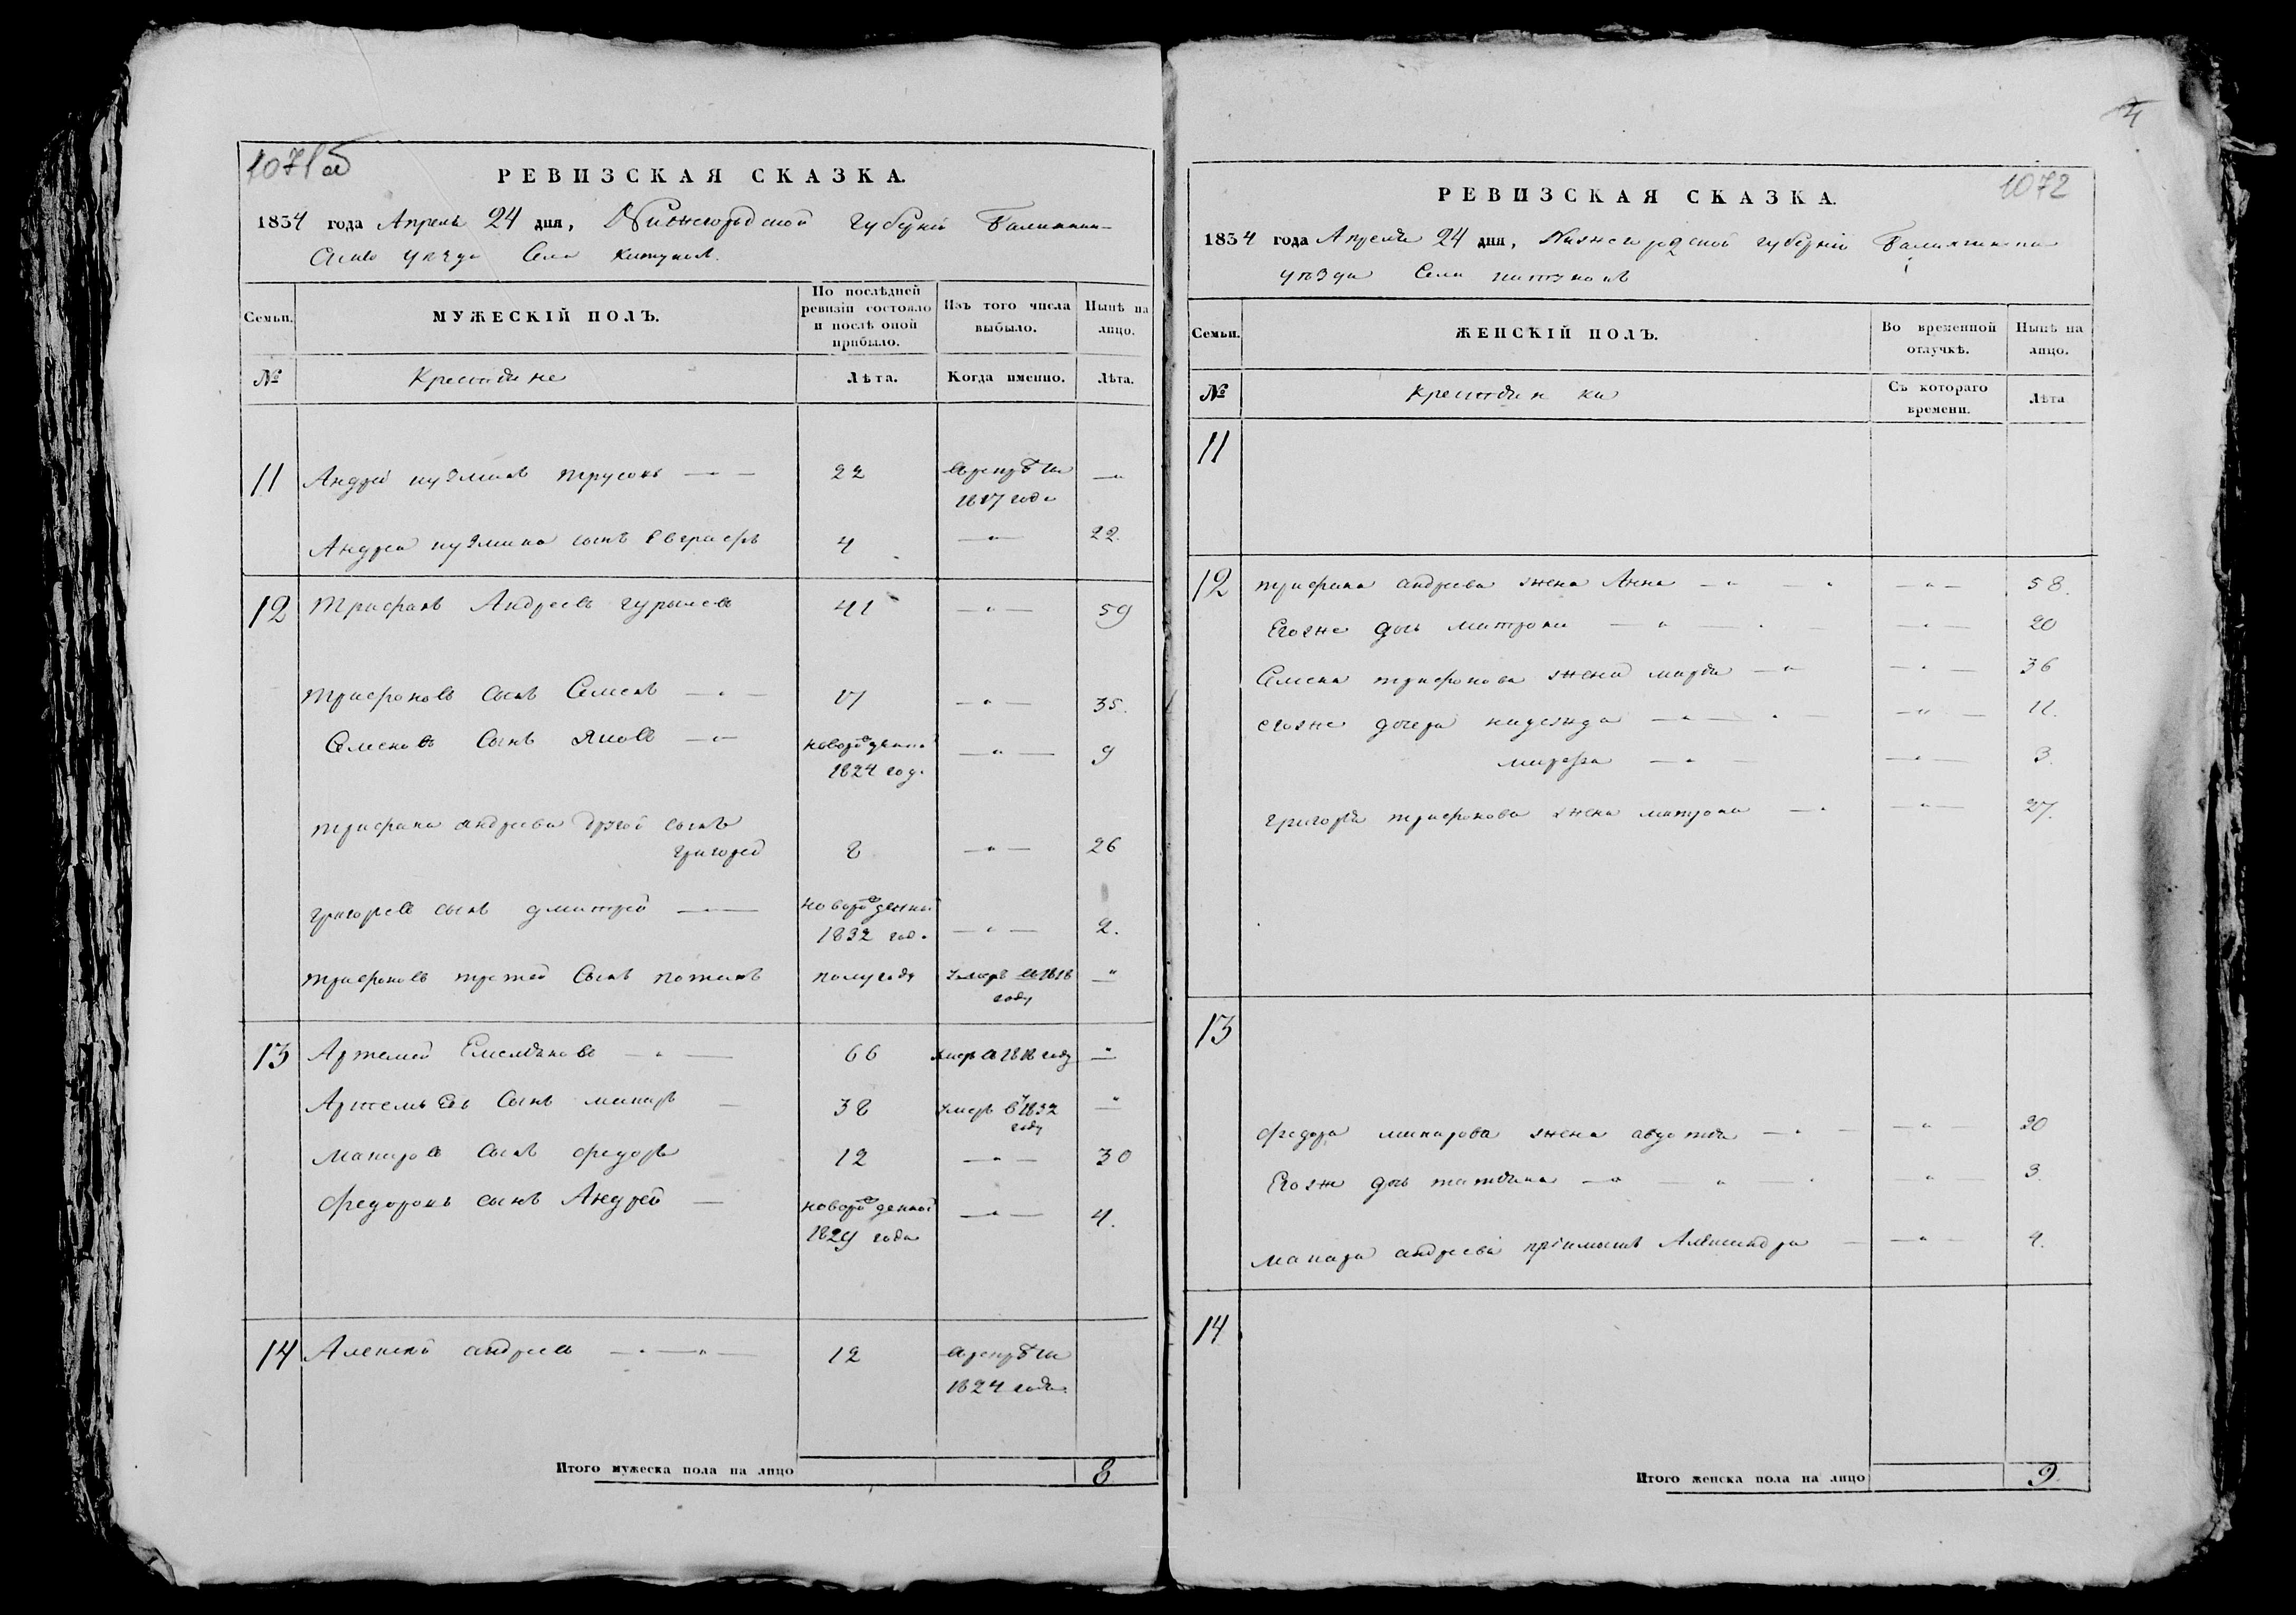 1071 об
РЕВИЗСКАЯ СКАЗКА.
1834 года Апреля 24 дня, Нижегородской губернiи Балахнин-
скаго уезда Села Катунокъ.
Семьи. МУЖЕСКIЙ ПОЛЪ. По послѣдней ревизiи состояло и послѣ оной прибыло. Изъ того числа выбыло. Нынѣ на лицо.
№ Крестьяне Лѣта. Когда именно. Лѣта.
11 Андрей кузминъ трусовъ 22 в рекруты —"
1817 года
Андрея кузмина сынъ Евграфъ 4 —"— 22.
12 Трифонъ Андреевъ гурылевъ 41 —"— 59
трифоновъ сынъ Семенъ —"— 17 —"— 35.
Семеновъ сынъ Яковъ —"— новорожденной —"— 9
1824 год.
трифона андреева другой сынъ
григорей 8 —"— 26
григорьевъ сынъ дмитрей — новорожденной
1832 год. —"— 2.
трифоновъ третей сынъ потапъ полугоду умеръ в 1818 —"
году
13 Артемей Емельяновъ —"— 66 умеръ в 1818 году —"
Артемьевъ сынъ макаръ — 38 умеръ в 1832 —"
году
Макаровъ сынъ федоръ 12 —"— 30
Федоровъ сынъ Андрей — новорожденной —"— 4.
1829 года
14 Алексей андреевъ —"—"— 12 в рекруты
1824 года
Итого мужеска пола на лицо 8
4
1072
РЕВИЗСКАЯ СКАЗКА.
1834 года Апреля 24 дня, Нижегородской губернiи Балахнинскаго
уѣзда Села катунокъ
Семьи. ЖЕНСКIЙ ПОЛЪ. Во временной отлучкѣ. Нынѣ на лицо.
№ Крестьянки Съ котораго времени. Лѣта
11
12 трифона андреева жена Анна —"— —"— 58.
Егоже дочь матрона —"— —"— 20
Семена трифонова жена марья —"— —"— 36
егоже дочеря надежда —"— —"— 11.
марфа —"— —"— 3.
григорья трифонова жена матрона —"— —"— 27.
13
Федора макарова жена авдотья —"— —"— 30
Егоже дочь татьяна —"— —"— 3
Макара андреева прiимышъ Александра — —"— 4.
14
Итого женска пола на лицо 9.